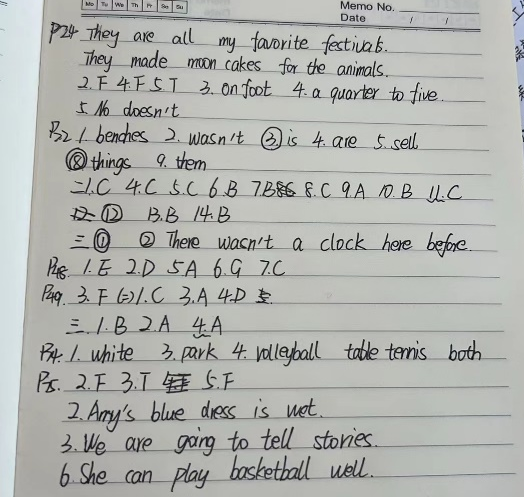 Mo Tu We Th Fr Sa Su
Memo No.
Date / /
P24 They are all my favorite festivals.
They made moon cakes for the animals.
2.F 4.F 5 T 3. on foot 4. a quarter to five.
5. No doesn't
P32 1. benches 2. wasn't ③ is 4. are 5. sell
⑧ things 9. them
二1.C 4.C 5.C 6.B 7.B 8.C 9.A 10.B 11.C
⑫ 13.B 14.B
三① ② There wasn't a clock here before.
P48. 1.E 2.D 5A 6.G 7.C
P49. 3.F (二)1.C 3.A 4.D
三.1.B 2.A 4.A
P54. 1. white 3. park 4. volleyball table tennis both
P55. 2.F 3.T 5.F
2. Amy's blue dress is wet.
3. We are going to tell stories.
6. She can play basketball well.